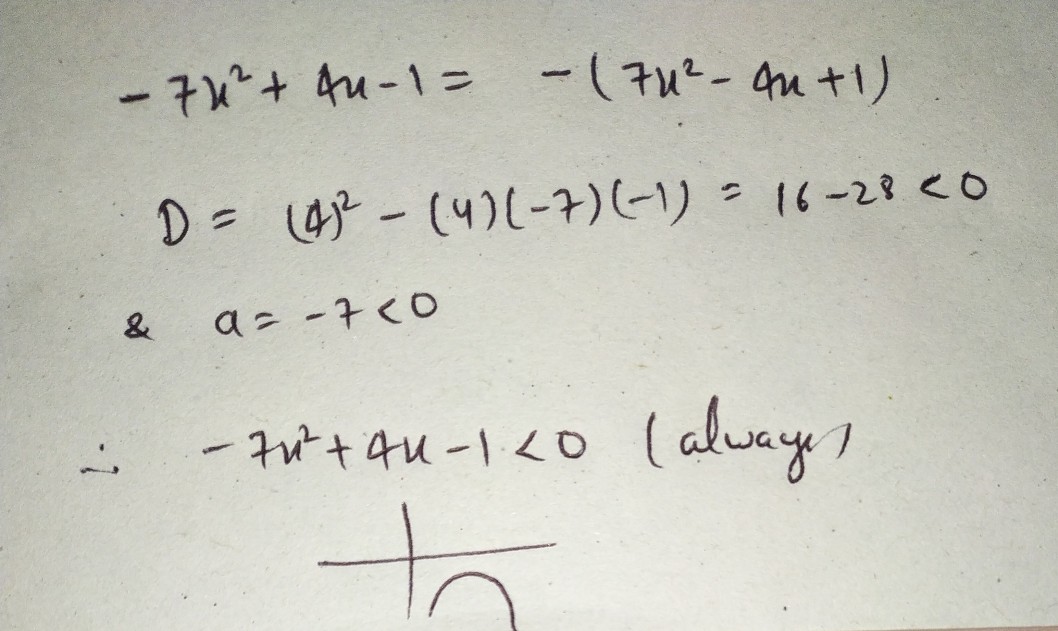 -7x²+4x-1= -(7x²-4x+1)
D= (4)²-(4)(-7)(-1) = 16-28<0
& a=-7<0
∴ -7x²+4x-1<0 (always)